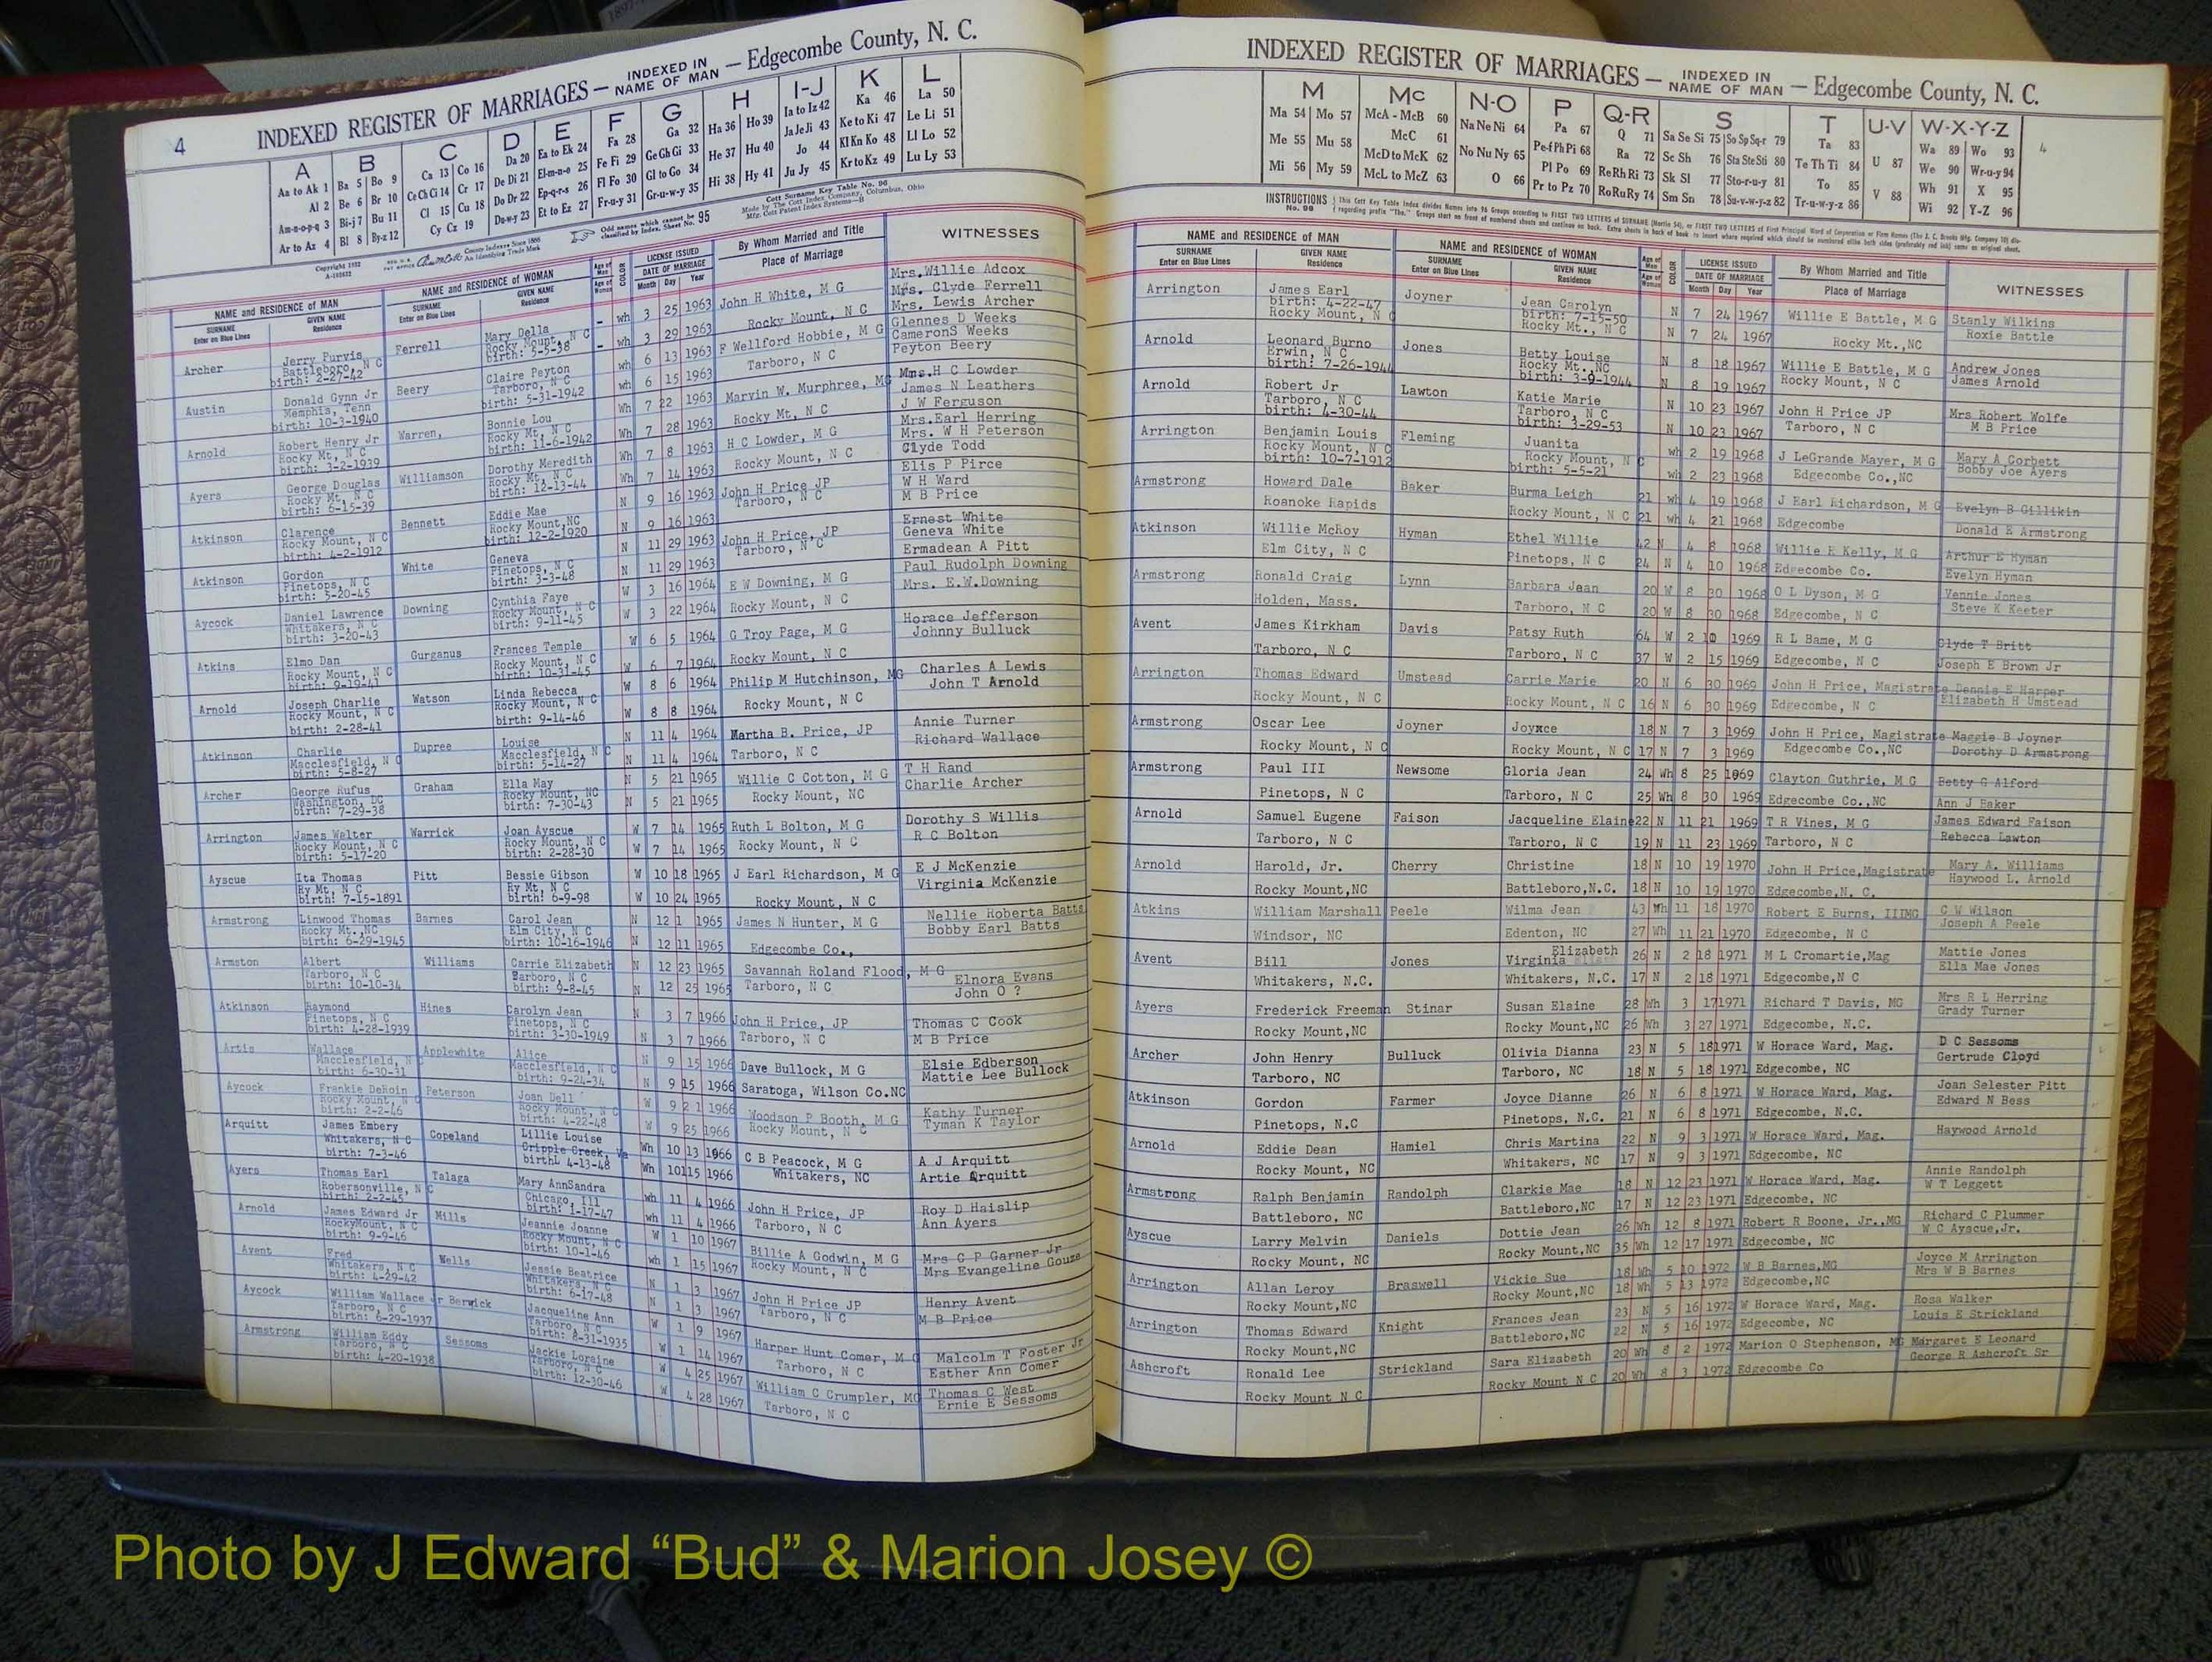 4
INDEXED REGISTER OF MARRIAGES — INDEXED IN NAME OF MAN — Edgecombe County, N. C.
A B C D E F G H I-J K L
Aa to Ak 1 Ba 5 Bo 9 Ca 13 Co 16 Da 20 Ea to Ek 24 Fa 28 Ga 32 Ha 36 Ho 39 Ia to Iz 42 Ka 46 La 50
Al 2 Be 6 Br 10 Ce Ch Ci 14 Cr 17 De Di 21 El-m-n-o 25 Fe Fi 29 Ge Gh Gi 33 He 37 Hu 40 Ja Je Ji 43 Ke to Ki 47 Le Li 51
Am-n-o-p-q 3 Bi-j 7 Bu 11 Cl 15 Cu 18 Do Dr 22 Ep-q-r-s 26 Fl Fo 30 Gl to Go 34 Hi 38 Hy 41 Jo 44 Kl Kn Ko 48 Ll Lo 52
Ar to Az 4 Bl 8 By-z 12 Cy Cz 19 Du-w-y 23 Et to Ez 27 Fr-u-y 31 Gr-u-w-y 35 Ju Jy 45 Kr to Kz 49 Lu Ly 53
Odd names which cannot be classified by Index, Sheet No. 95
Cott Surname Key Table No. 96
Made by The Cott Index Company, Columbus, Ohio
NAME and RESIDENCE of MAN NAME and RESIDENCE of WOMAN COLOR LICENSE ISSUED By Whom Married and Title WITNESSES
SURNAME Enter on Blue Lines GIVEN NAME Residence SURNAME Enter on Blue Lines GIVEN NAME Residence DATE OF MARRIAGE Month Day Year Place of Marriage
Mrs. Willie Adcox
Archer Jerry Purvis Ferrell Mary Della - wh 3 25 1963 John H White, M G Mrs. Clyde Ferrell
Battleboro, N C Rocky Mount, N C - wh 3 29 1963 Rocky Mount, N C Mrs. Lewis Archer
birth: 2-27-42 birth: 5-5-38
Austin Donald Gynn Jr Beery Claire Peyton wh 6 13 1963 F Wellford Hobbie, M G Glennes D Weeks
Memphis, Tenn Tarboro, N C wh 6 15 1963 Tarboro, N C CameronS Weeks
birth: 10-3-1940 birth: 5-31-1942 Peyton Beery
Arnold Robert Henry Jr Warren, Bonnie Lou Wh 7 22 1963 Marvin W. Murphree, MG Mrs.H C Lowder
Rocky Mt, N C Rocky Mt, N C Wh 7 28 1963 Rocky Mt, N C James N Leathers
birth: 3-2-1939 birth: 11-6-1942 J W Ferguson
Ayers George Douglas Williamson Dorothy Meredith Wh 7 8 1963 H C Lowder, M G Mrs.Earl Herring
Rocky Mt, N C Rocky Mt, N C Wh 7 14 1963 Rocky Mount, N C Mrs. W H Peterson
birth: 6-15-39 birth: 12-13-44 Clyde Todd
Atkinson Clarence Bennett Eddie Mae N 9 16 1963 John H Price JP Elis P Pirce
Rocky Mount, N C Rocky Mount,NC N 9 16 1963 Tarboro, N C W H Ward
birth: 4-2-1912 birth: 12-2-1920 M B Price
Atkinson Gordon White Geneva N 11 29 1963 John H Price, JP Ernest White
Pinetops, N C Pinetops, N C N 11 29 1963 Tarboro, N C Geneva White
birth: 5-20-45 birth: 3-3-48 Ermadean A Pitt
Aycock Daniel Lawrence Downing Cynthia Faye W 3 16 1964 E W Downing, M G Paul Rudolph Downing
Whitakers, N C Rocky Mount, N C W 3 22 1964 Rocky Mount, N C Mrs. E.W.Downing
birth: 3-20-43 birth: 9-11-45
Atkins Elmo Dan Gurganus Frances Temple W 6 5 1964 G Troy Page, M G Horace Jefferson
Rocky Mount, N C Rocky Mount, N C W 6 7 1964 Rocky Mount, N C Johnny Bulluck
birth: 9-19-41 birth: 10-31-45
Arnold Joseph Charlie Watson Linda Rebecca W 8 6 1964 Philip M Hutchinson, MG Charles A Lewis
Rocky Mount, N C Rocky Mount, N C W 8 8 1964 Rocky Mount, N C John T Arnold
birth: 2-28-41 birth: 9-14-46
Atkinson Charlie Dupree Louise N 11 4 1964 Martha B. Price, JP Annie Turner
Macclesfield, N C Macclesfield, N C N 11 4 1964 Tarboro, N C Richard Wallace
birth: 5-8-27 birth: 5-14-27
Archer George Rufus Graham Ella May N 5 21 1965 Willie C Cotton, M G T H Rand
Washington, DC Rocky Mount, NC N 5 21 1965 Rocky Mount, NC Charlie Archer
birth: 7-29-38 birth: 7-30-43
Arrington James Walter Warrick Joan Ayscue W 7 14 1965 Ruth L Bolton, M G Dorothy S Willis
Rocky Mount, N C Rocky Mount, N C W 7 14 1965 Rocky Mount, N C R C Bolton
birth: 5-17-20 birth: 2-28-30
Ayscue Ita Thomas Pitt Bessie Gibson W 10 18 1965 J Earl Richardson, M G E J McKenzie
Ry Mt, N C Ry Mt, N C W 10 24 1965 Rocky Mount, N C Virginia McKenzie
birth: 7-15-1891 birth: 6-9-98
Armstrong Linwood Thomas Barnes Carol Jean N 12 1 1965 James N Hunter, M G Nellie Roberta Batts
Rocky Mt.,NC Elm City, N C N 12 11 1965 Edgecombe Co., Bobby Earl Batts
birth: 6-29-1945 birth: 10-16-1946
Armston Albert Williams Carrie Elizabeth N 12 23 1965 Savannah Roland Flood, M G Elnora Evans
Tarboro, N C Tarboro, N C N 12 25 1965 Tarboro, N C John O ?
birth: 10-10-34 birth: 9-8-45
Atkinson Raymond Hines Carolyn Jean N 3 7 1966 John H Price, JP Thomas C Cook
Pinetops, N C Pinetops, N C N 3 7 1966 Tarboro, N C M B Price
birth: 4-28-1939 birth: 3-30-1949
Artis Wallace Applewhite Alice N 9 15 1966 Dave Bullock, M G Elsie Edberson
Macclesfield, N C Macclesfield, N C N 9 15 1966 Saratoga, Wilson Co.NC Mattie Lee Bullock
birth: 6-30-31 birth: 9-24-34
Aycock Frankie DeRoin Peterson Joan Dell W 9 21 1966 Woodson P Booth, M G Kathy Turner
Rocky Mount, N C Rocky Mount, N C W 9 25 1966 Rocky Mount, N C Tyman K Taylor
birth: 2-2-46 birth: 4-22-48
Arquitt James Embery Copeland Lillie Louise Wh 10 13 1966 C B Peacock, M G A J Arquitt
Whitakers, N C Cripple Creek, Va Wh 10 15 1966 Whitakers, NC Artie Arquitt
birth: 7-3-46 birthL 4-13-48
Ayers Thomas Earl Talaga Mary AnnSandra wh 11 4 1966 John H Price, JP Roy D Haislip
Robersonville, N C Chicago, Ill wh 11 4 1966 Tarboro, N C Ann Ayers
birth: 2-2-45 birth: 1-17-47
Arnold James Edward Jr Mills Jeannie Joanne W 1 10 1967 Billie A Godwin, M G Mrs C P Garner Jr
RockyMount, N C Rocky Mount, N C wh 1 15 1967 Rocky Mount, N C Mrs Evangeline Gouze
birth: 9-9-46 birth: 10-1-46
Avent Fred Wells Jessie Beatrice N 1 3 1967 John H Price JP Henry Avent
Whitakers, N C Whitakers, N C N 1 3 1967 Tarboro, N C M B Price
birth: 4-29-42 birth: 6-17-48
Aycock William Wallace Jr Berwick Jacqueline Ann W 1 9 1967 Harper Hunt Comer, M G Malcolm T Foster Jr
Tarboro, N C Tarboro, N C W 1 14 1967 Tarboro, N C Esther Ann Comer
birth: 6-29-1937 birth: 8-31-1935
Armstrong William Eddy Sessoms Jackie Loraine W 4 25 1967 William C Crumpler, MG Thomas C West
Tarboro, N C Tarboro, N C W 4 28 1967 Tarboro, N C Ernie E Sessoms
birth: 4-20-1938 birth: 12-30-46
INDEXED REGISTER OF MARRIAGES — INDEXED IN NAME OF MAN — Edgecombe County, N. C.
M Mc N-O P Q-R S T U-V W-X-Y-Z
4
Ma 54 Mo 57 McA - McB 60 Na Ne Ni 64 Pa 67 Q 71 Sa Se Si 75 So Sp Sq-r 79 Ta 83 U 87 Wa 89 Wo 93
Me 55 Mu 58 McC 61 No Nu Ny 65 Pe-f Ph Pi 68 Ra 72 Sc Sh 76 Sta Ste Sti 80 Te Th Ti 84 V 88 We 90 Wr-u-y 94
Mi 56 My 59 McD to McK 62 O 66 Pl Po 69 Re Rh Ri 73 Sk Sl 77 Sto-r-u-y 81 To 85 Wh 91 X 95
McL to McZ 63 Pr to Pz 70 Ro Ru Ry 74 Sm Sn 78 Su-v-w-y-z 82 Tr-u-w-y-z 86 Wi 92 Y-Z 96
INSTRUCTIONS
NAME and RESIDENCE OF MAN NAME and RESIDENCE OF WOMAN COLOR LICENSE ISSUED By Whom Married and Title WITNESSES
SURNAME Enter on Blue Lines GIVEN NAME Residence SURNAME Enter on Blue Lines GIVEN NAME Residence DATE OF MARRIAGE Month Day Year Place of Marriage
Arrington James Earl Joyner Jean Carolyn N 7 24 1967 Willie E Battle, M G Stanly Wilkins
birth: 4-22-47 birth: 7-15-50 N 7 24 1967 Rocky Mt.,NC Roxie Battle
Rocky Mount, N C Rocky Mt., N C
Arnold Leonard Burno Jones Betty Louise N 8 18 1967 Willie E Battle, M G Andrew Jones
Erwin, N C Rocky Mt.,NC N 8 19 1967 Rocky Mount, N C James Arnold
birth: 7-26-1944 birth: 3-9-1944
Arnold Robert Jr Lawton Katie Marie N 10 23 1967 John H Price JP Mrs Robert Wolfe
Tarboro, N C Tarboro, N C N 10 23 1967 Tarboro, N C M B Price
birth: 4-30-44 birth: 3-29-53
Arrington Benjamin Louis Fleming Juanita wh 2 19 1968 J LeGrande Mayer, M G Mary A Corbett
Rocky Mount, N C Rocky Mount, N C wh 2 23 1968 Edgecombe Co.,NC Bobby Joe Ayers
birth: 10-7-1912 birth: 5-5-21
Armstrong Howard Dale Baker Burma Leigh 21 wh 4 19 1968 J Earl Richardson, M G Evelyn B Gillikin
Roanoke Rapids Rocky Mount, N C 21 wh 4 21 1968 Edgecombe Donald E Armstrong
Atkinson Willie McRoy Hyman Ethel Willie 42 N 4 8 1968 Willie E Kelly, M G Arthur E Hyman
Elm City, N C Pinetops, N C 24 N 4 10 1968 Edgecombe Co. Evelyn Hyman
Armstrong Ronald Craig Lynn Barbara Jean 20 W 8 30 1968 O L Dyson, M G Vennie Jones
Holden, Mass. Tarboro, N C 20 W 8 30 1968 Edgecombe, N C Steve K Keeter
Avent James Kirkham Davis Patsy Ruth 64 W 2 10 1969 R L Bame, M G Clyde T Britt
Tarboro, N C Tarboro, N C 37 W 2 15 1969 Edgecombe, N C Joseph E Brown Jr
Arrington Thomas Edward Umstead Carrie Marie 20 N 6 30 1969 John H Price, Magistrate Dennis E Harper
Rocky Mount, N C Rocky Mount, N C 16 N 6 30 1969 Edgecombe, N C Elizabeth H Umstead
Armstrong Oscar Lee Joyner Joyxce 18 N 7 3 1969 John H Price, Magistrate Maggie B Joyner
Rocky Mount, N C Rocky Mount, N C 17 N 7 3 1969 Edgecombe Co.,NC Dorothy D Armstrong
Armstrong Paul III Newsome Gloria Jean 24 Wh 8 25 1969 Clayton Guthrie, M G Betty G Alford
Pinetops, N C Tarboro, N C 25 Wh 8 30 1969 Edgecombe Co.,NC Ann J Baker
Arnold Samuel Eugene Faison Jacqueline Elaine 22 N 11 21 1969 T R Vines, M G James Edward Faison
Tarboro, N C Tarboro, N C 19 N 11 23 1969 Tarboro, N C Rebecca Lawton
Arnold Harold, Jr. Cherry Christine 18 N 10 19 1970 John H Price,Magistrate Mary A. Williams
Rocky Mount,NC Battleboro,N.C. 18 N 10 19 1970 Edgecombe,N. C. Haywood L. Arnold
Atkins William Marshall Peele Wilma Jean 43 Wh 11 18 1970 Robert E Burns, IIIMG C W Wilson
Windsor, NC Edenton, NC 27 Wh 11 21 1970 Edgecombe, N C Joseph A Peele
Avent Bill Jones Virginia Elizabeth 26 N 2 18 1971 M L Cromartie,Mag Mattie Jones
Whitakers, N.C. Whitakers, N.C. 17 N 2 18 1971 Edgecombe,N C Ella Mae Jones
Ayers Frederick Freeman Stinar Susan Elaine 28 Wh 3 17 1971 Richard T Davis, MG Mrs R L Herring
Rocky Mount,NC Rocky Mount,NC 26 Wh 3 27 1971 Edgecombe, N.C. Grady Turner
Archer John Henry Bulluck Olivia Dianna 23 N 5 18 1971 W Horace Ward, Mag. D C Sessoms
Tarboro, NC Tarboro, NC 18 N 5 18 1971 Edgecombe, NC Gertrude Cloyd
Atkinson Gordon Farmer Joyce Dianne 26 N 6 8 1971 W Horace Ward, Mag. Joan Selester Pitt
Pinetops, N.C Pinetops, N.C. 21 N 6 8 1971 Edgecombe, N.C. Edward N Bess
Arnold Eddie Dean Hamiel Chris Martina 22 N 9 3 1971 W Horace Ward, Mag. Haywood Arnold
Rocky Mount, NC Whitakers, NC 17 N 9 3 1971 Edgecombe, NC
Armstrong Ralph Benjamin Randolph Clarkie Mae 18 N 12 23 1971 W Horace Ward, Mag. Annie Randolph
Battleboro, NC Battleboro,NC 17 N 12 23 1971 Edgecombe, NC W T Leggett
Ayscue Larry Melvin Daniels Dottie Jean 26 Wh 12 8 1971 Robert R Boone, Jr.,MG Richard C Plummer
Rocky Mount, NC Rocky Mount,NC 35 Wh 12 17 1971 Edgecombe, NC W C Ayscue,Jr.
Arrington Allan Leroy Braswell Vickie Sue 18 Wh 5 10 1972 W B Barnes,MG Joyce M Arrington
Rocky Mount,NC Rocky Mount,NC 18 Wh 5 13 1972 Edgecombe,NC Mrs W B Barnes
Arrington Thomas Edward Knight Frances Jean 23 N 5 16 1972 W Horace Ward, Mag. Rosa Walker
Rocky Mount,NC Battleboro,NC 22 N 5 16 1972 Edgecombe, NC Louis E Strickland
Ashcroft Ronald Lee Strickland Sara Elizabeth 20 Wh 8 2 1972 Marion O Stephenson, MG Margaret E Leonard
Rocky Mount N C Rocky Mount N C 20 Wh 8 3 1972 Edgecombe Co George R Ashcroft Sr
Photo by J Edward “Bud” & Marion Josey ©